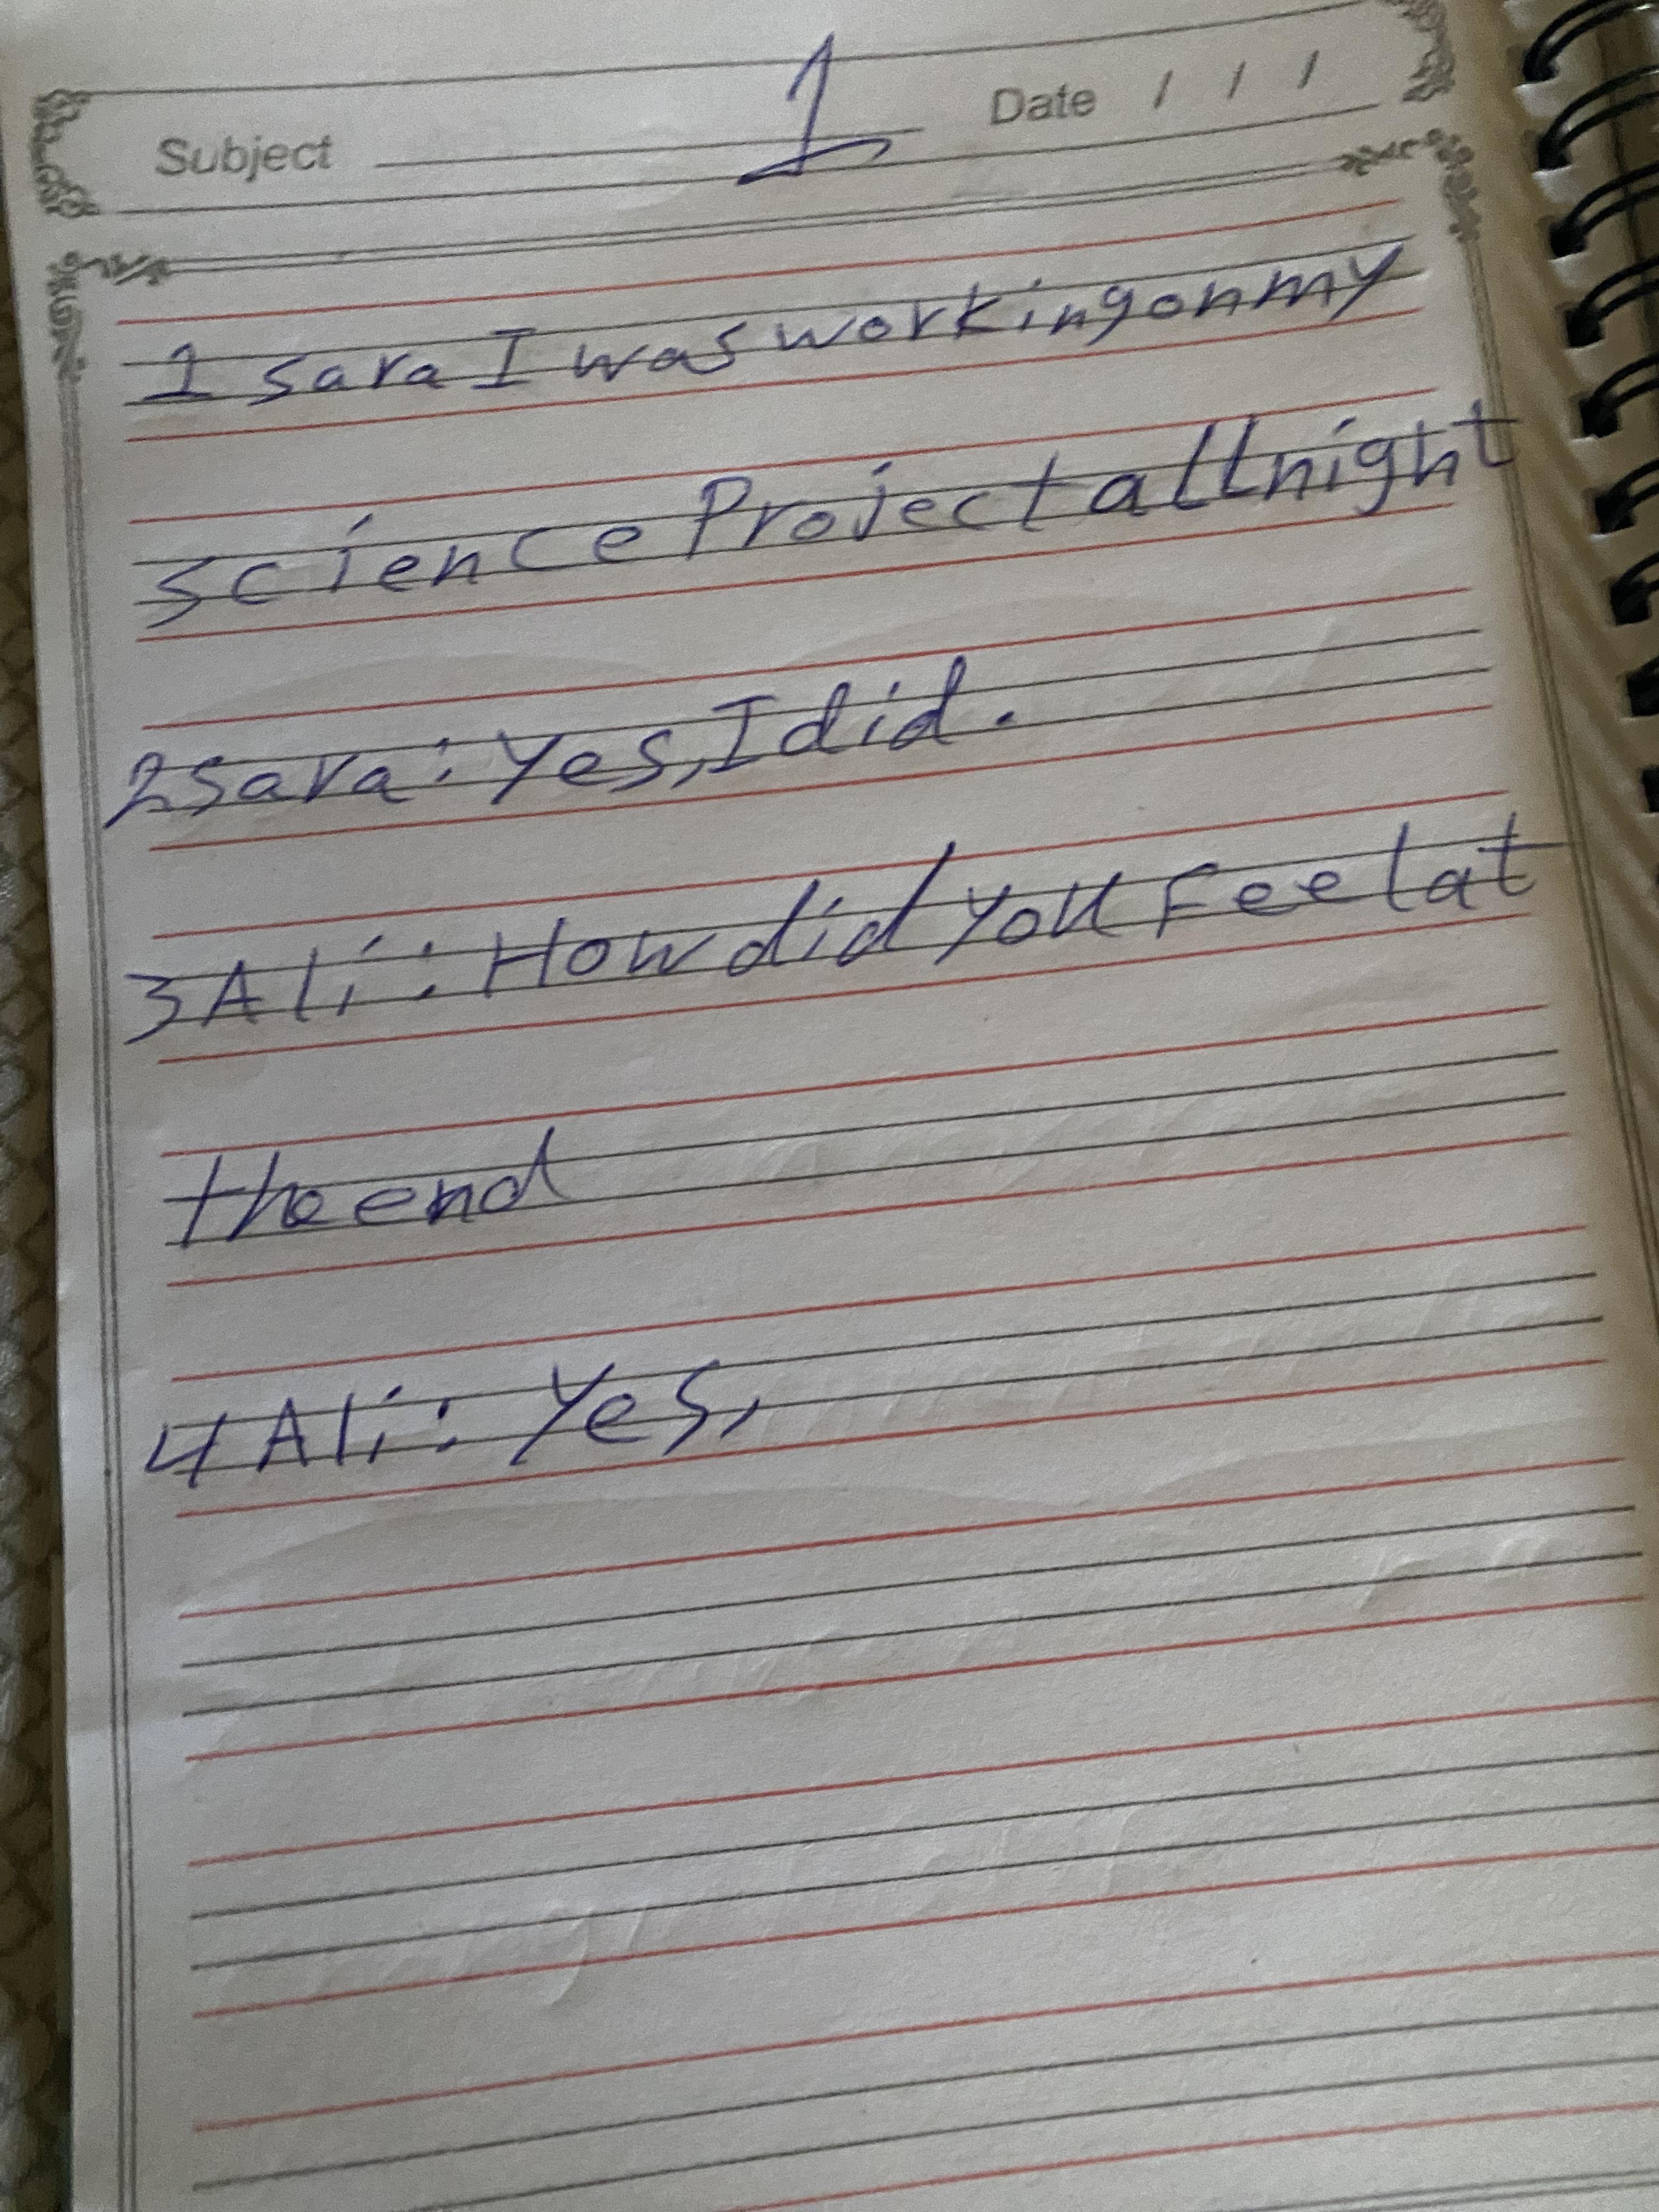 1
Subject Date / / /
1 sara I was working on my
science Project all night
2 sara: Yes, I did.
3 Ali: How did you Feel at
the end
4 Ali: Yes,